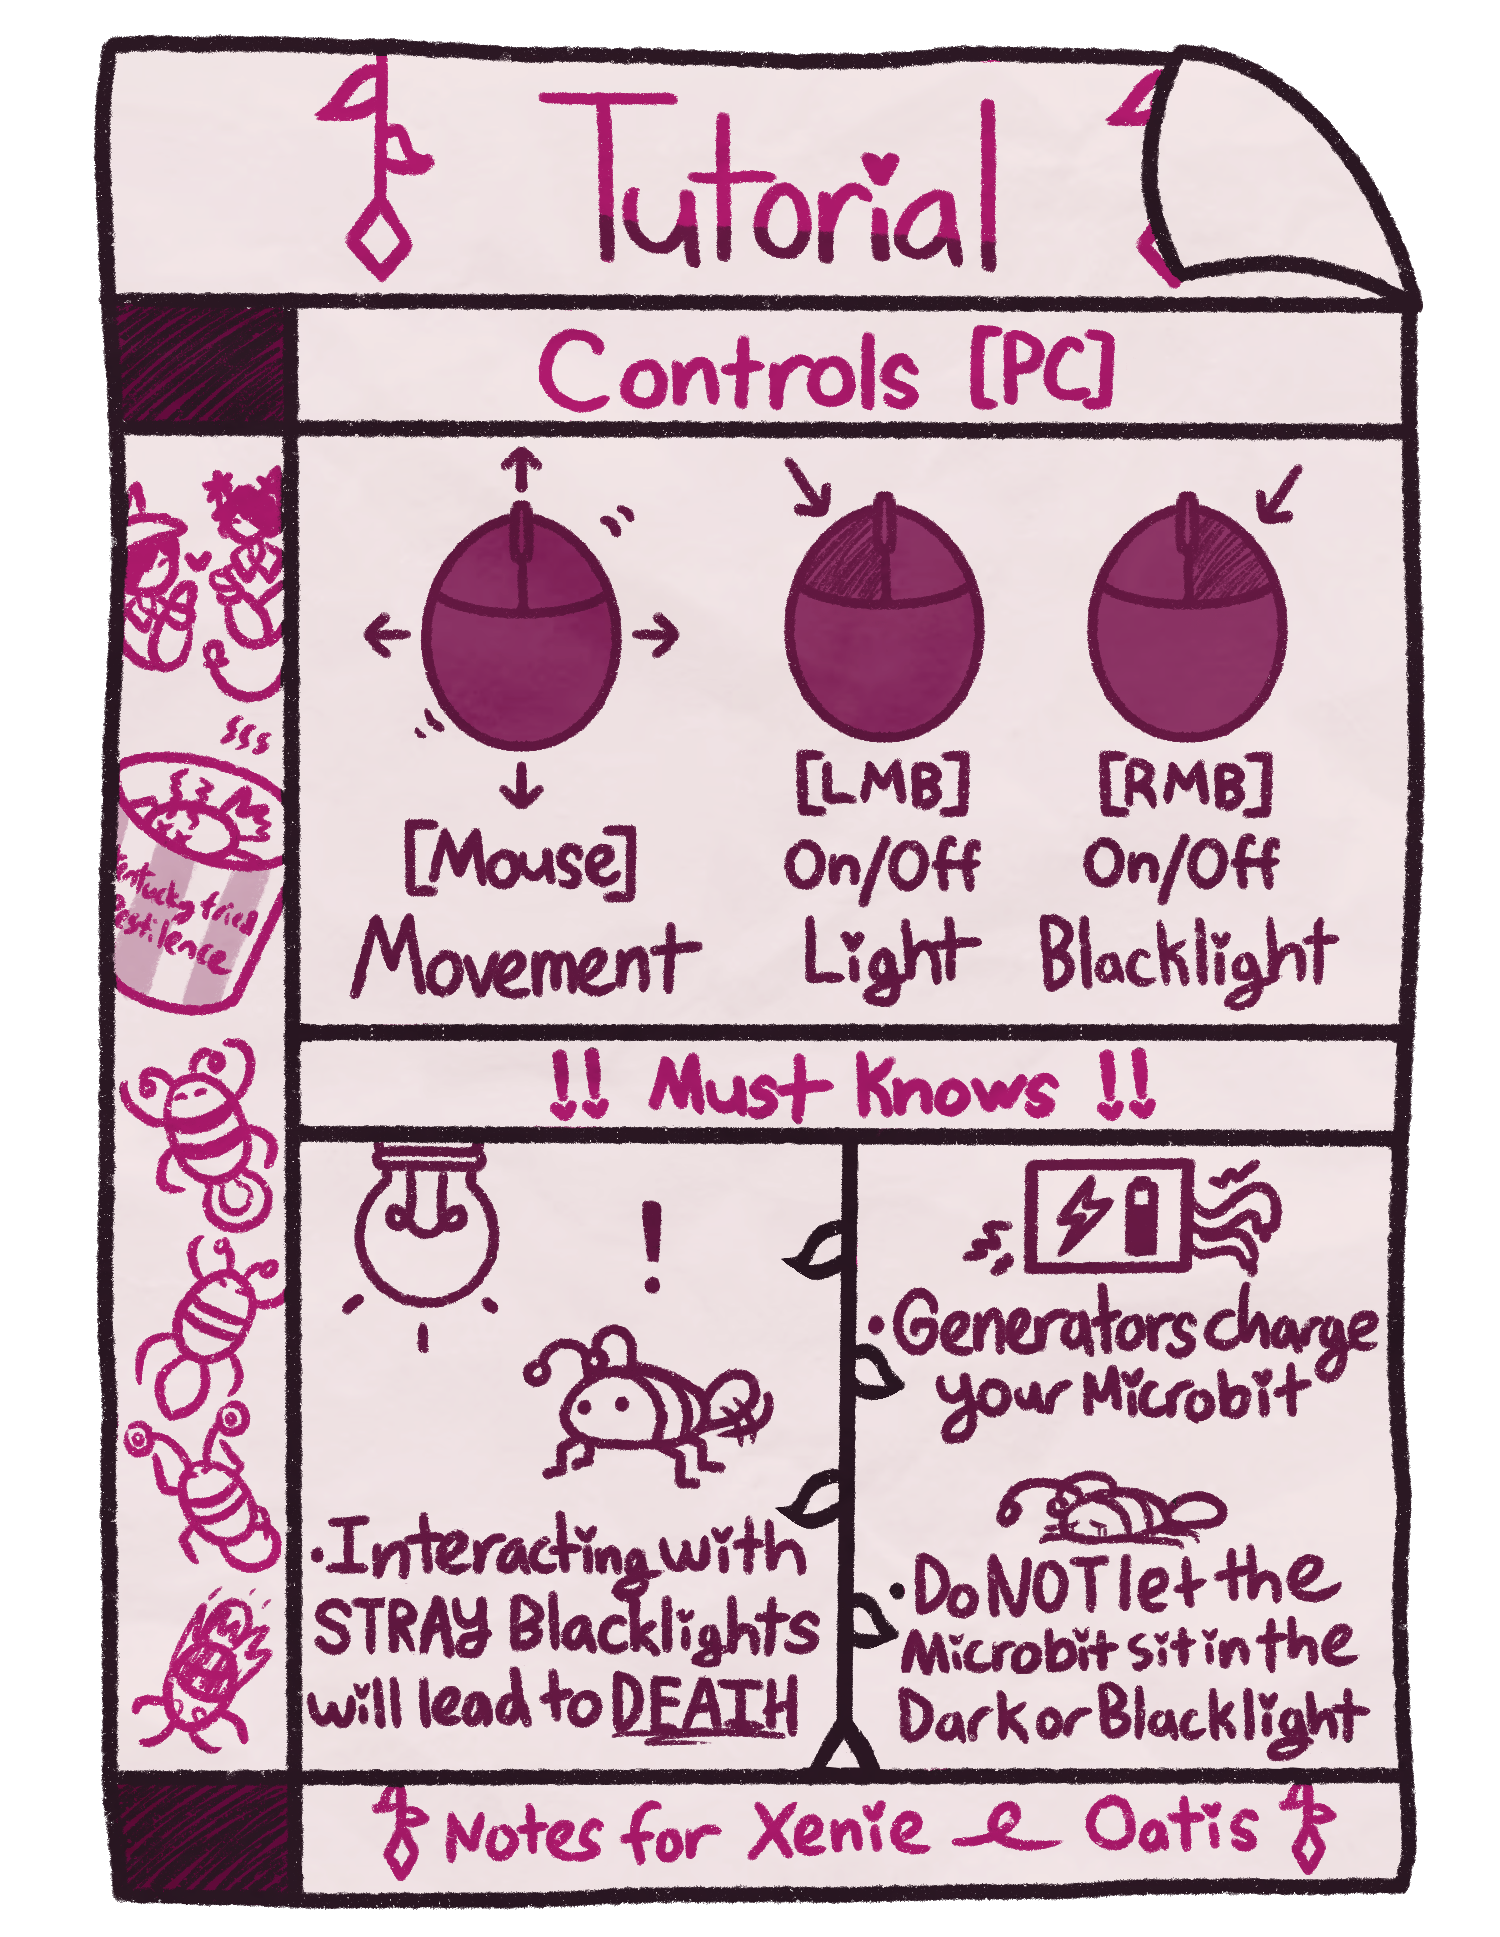 Tutorial
Controls [PC]
[Mouse]
Movement
[LMB]
On/Off
Light
[RMB]
On/Off
Blacklight
entucky fried
estilence
!! Must Knows !!
!
·Interacting with
STRAY Blacklights
will lead to DEATH
·Generators charge
your Microbit
·Do NOT let the
Microbit sit in the
Dark or Blacklight
Notes for Xenie & Oatis